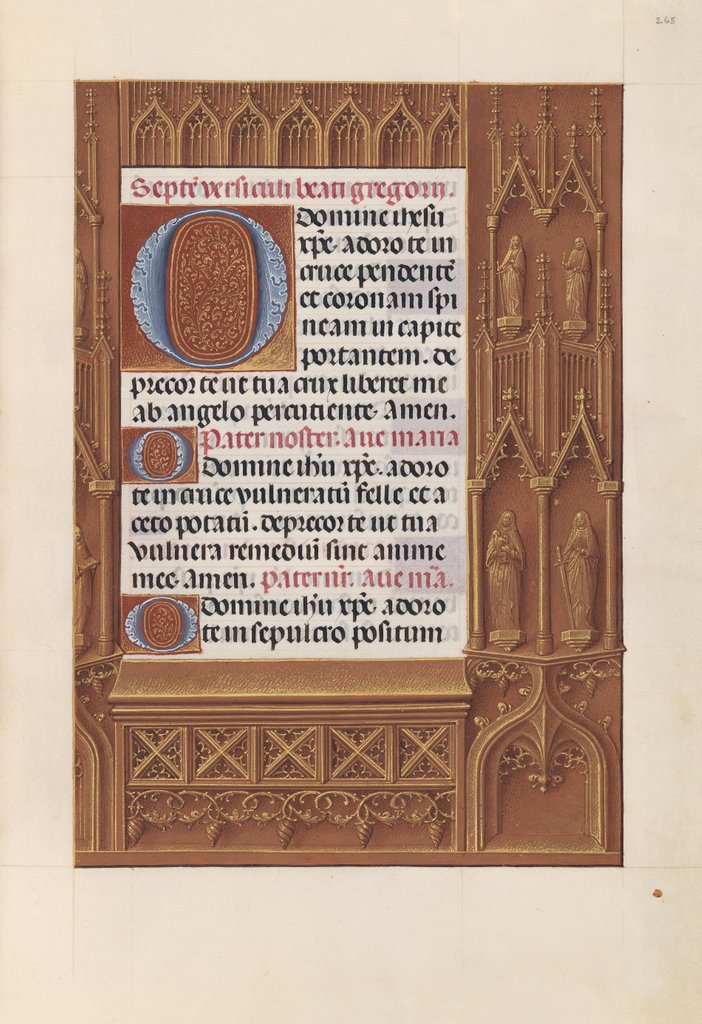 265
Septē versiculi beati gregorii.
O Domine ihesu
xp̄e. adoro te in
cruce pendentē
et coronam spi
neam in capite
portantem. de
precor te ut tua crux liberet me
ab angelo percutiente. Amen.
Pater noster. Aue maria
O Domine ihū xp̄e. adoro
te in cruce vulneratū felle et a
ceto potatū. deprecor te ut tua
vulnera remediū sint anime
mee. Amen. Pater nr̄. Aue m̄a.
O Domine ihū xp̄e. adoro
te in sepulcro positum